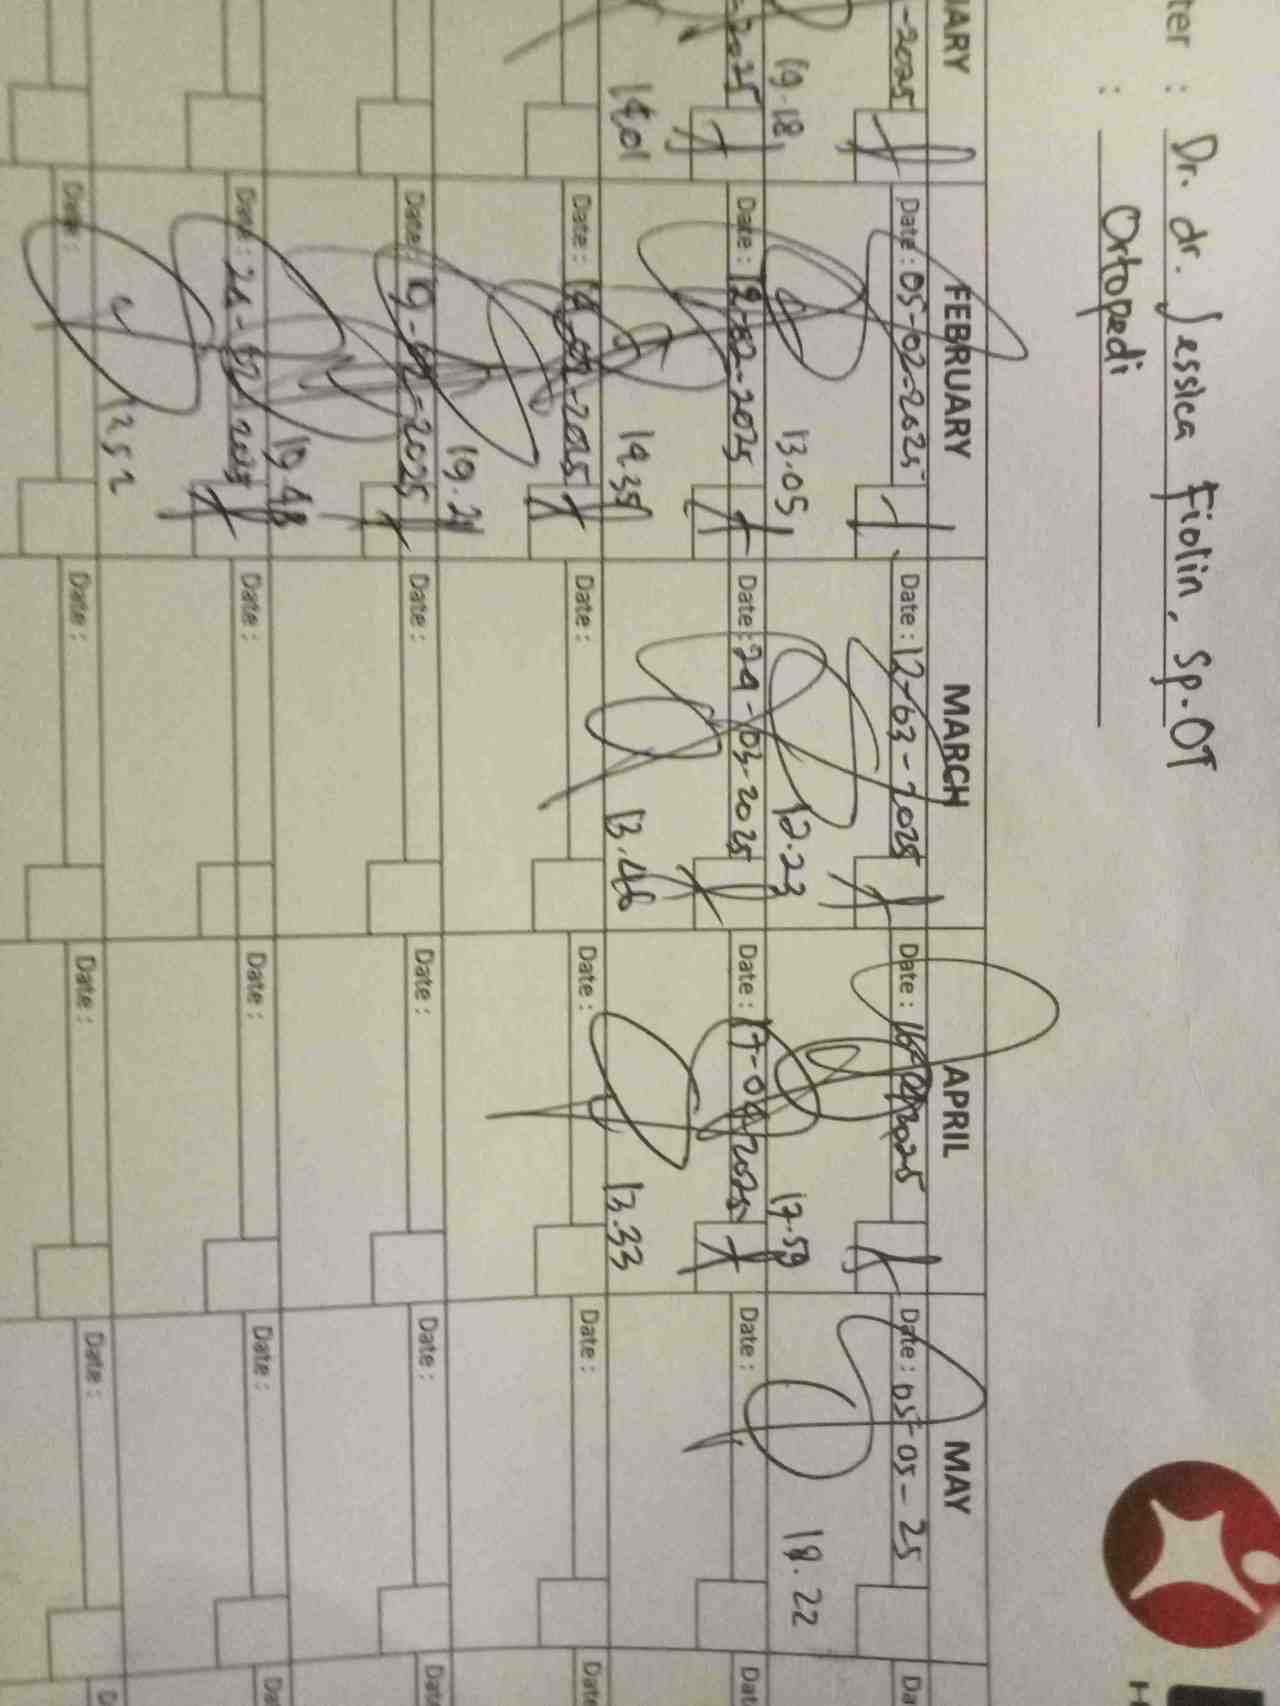 ter : Dr. dr. Jessica Fiolin, Sp.OT
: Ortopedi
UARY FEBRUARY MARCH APRIL MAY
-2025 Date : 05-02-2025 Date : 12-03-2025 Date : 16-04-2025 Date : 05-05-25 Da
19.18 13.05 12.23 17.59 18.22
-2025 Date : 12-02-2025 Date : 24-03-2025 Date : 17-04-2025 Date : Dat
14.01 14.35 13.46 13.33
Date : 14-02-2025 Date : Date : Date : Dat
19.21
Date : 19-02-2025 Date : Date : Date : Dat
19.48
Date : 24-02-2025 Date : Date : Date : Da
12.52
Date : Date : Date : Date : D
H